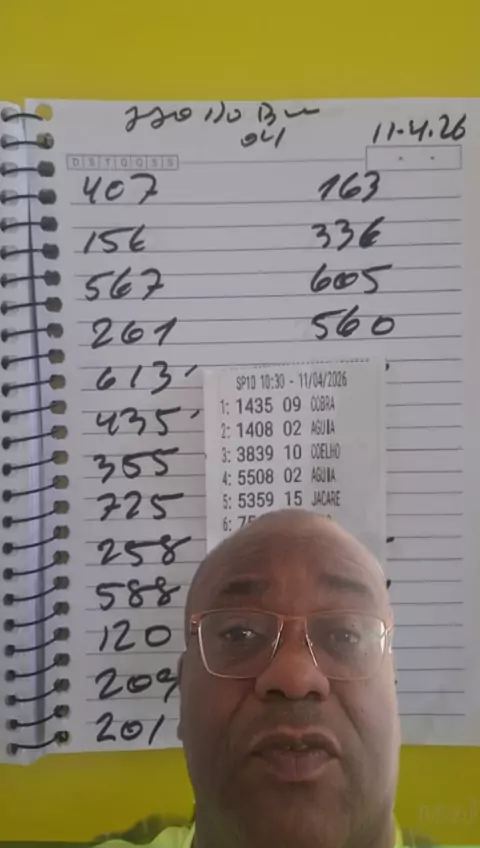 11.4.26
04
D S T Q Q S S
407 163
156 336
567 605
261 560
613
435
355
725
258
588
120
209
201
SP10 10:30 - 11/04/2026
1: 1435 09 COBRA
2: 1408 02 AGUIA
3: 3839 10 COELHO
4: 5508 02 AGUIA
5: 5359 15 JACARE
6: